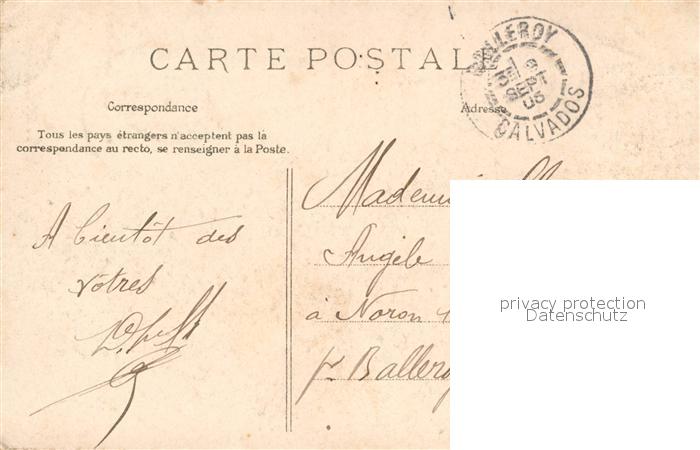 CARTE POSTAL
BALLEROY
CALVADOS
Correspondance
Adresse
Tous les pays étrangers n'acceptent pas la
correspondance au recto, se renseigner à la Poste.
A bientôt des
vôtres
Angèle
à Noron
pr Balleroy
privacy protection
Datenschutz